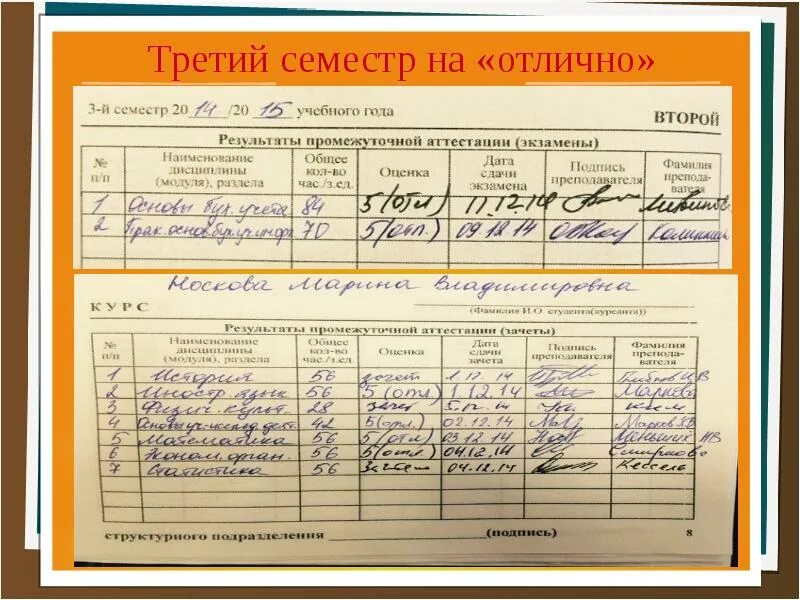 Третий семестр на «отлично»
3-й семестр 20 14 /20 15 учебного года
ВТОРОЙ
Результаты промежуточной аттестации (экзамены)
№ п/п Наименование дисциплины (модуля), раздела Общее кол-во час./з.ед. Оценка Дата сдачи экзамена Подпись преподавателя Фамилия препода-вателя
1 Основы бух. учета 84 5(отл) 11.12.14
2 Прак. основ бух. уч. 70 5(отл.) 09.12.14
Носкова Марина Владимировна
КУРС
(Фамилия И.О. студента(курсанта))
Результаты промежуточной аттестации (зачеты)
№ п/п Наименование дисциплины (модуля), раздела Общее кол-во час./з.ед. Оценка Дата сдачи зачета Подпись преподавателя Фамилия препода-вателя
1 История 56 зачет 1.12.14
2 Иностр. язык 56 5(отл.) 1.12.14
3 Физич. культ. 28 зачет 5.12.14
4 Основы 42 5(отл.) 02.12.14
5 Математика 56 5(отл) 03.12.14 Меньших
6 Эконом. орган. 56 5(отл.) 04.12.14 Смирнова
7 Статистика 56 Зачтено 04.12.14 Кессель
структурного подразделения (подпись) 8